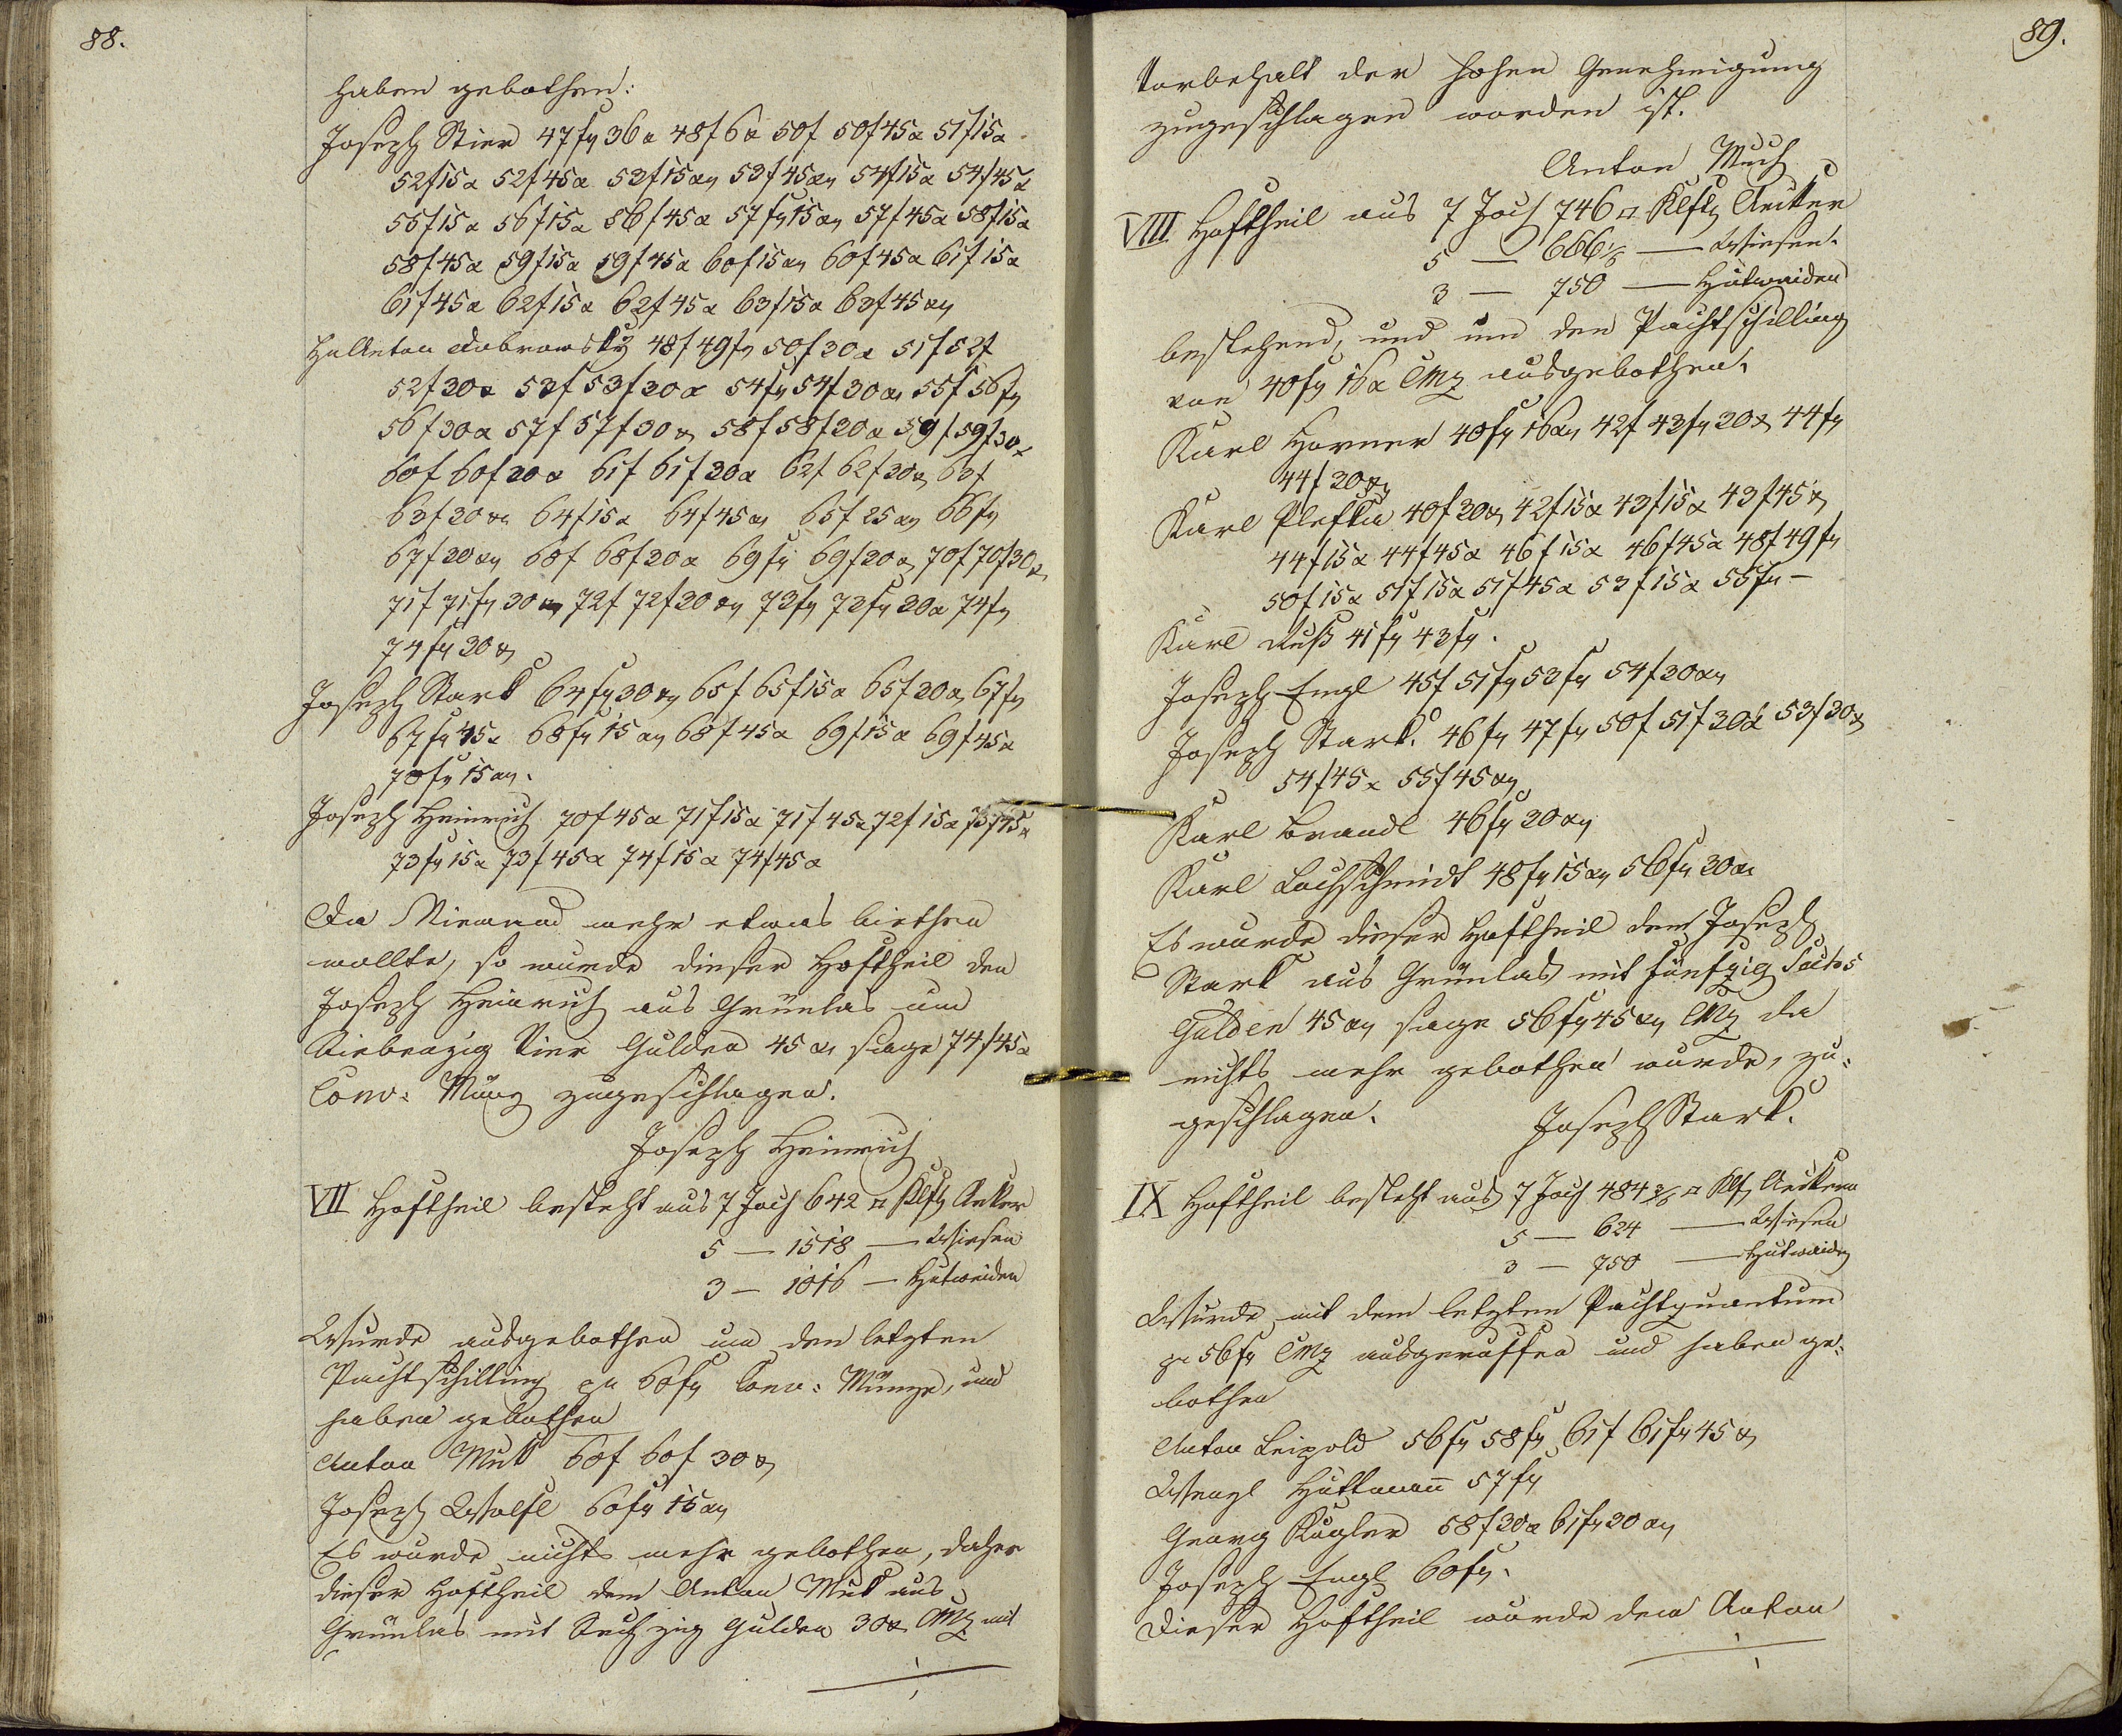 88.
haben gebothen:
Joseph Stier 47 f 36 x 48 f 6 x 50 f 50 f 45 x 51 f 15 x
52 f 15 x 52 f 45 x 53 f 15 x 53 f 45 x 54 f 15 x 54 f 45 x
55 f 15 x 56 f 15 x 56 f 45 x 57 f 15 x 57 f 45 x 58 f 15 x
58 f 45 x 59 f 15 x 59 f 45 x 60 f 15 x 60 f 45 x 61 f 15 x
61 f 45 x 62 f 15 x 62 f 45 x 63 f 15 x 63 f 45 x
H. Anton Dobrowsky 48 f 49 f 50 f 30 x 51 f 52 f
52 f 30 x 53 f 53 f 30 x 54 f 54 f 30 x 55 f 56 f
56 f 30 x 57 f 57 f 30 x 58 f 58 f 30 x 59 f 59 f 30 x
60 f 60 f 30 x 61 f 61 f 30 x 62 f 62 f 30 x 63 f
63 f 30 x 64 f 15 x 64 f 45 x 65 f 25 x 66 f
67 f 30 x 68 f 68 f 30 x 69 f 69 f 30 x 70 f 70 f 30 x
71 f 71 f 30 x 72 f 72 f 30 x 73 f 73 f 30 x 74 f
74 f 30 x
Joseph Stark 64 f 30 x 65 f 65 f 15 x 65 f 30 x 67 f
67 f 45 x 68 f 15 x 68 f 45 x 69 f 15 x 69 f 45 x
70 f 15 x.
Joseph Heinrich 70 f 45 x 71 f 15 x 71 f 45 x 72 f 15 x
73 f 15 x 73 f 45 x 74 f 15 x 74 f 45 x
Da Niemand mehr etwas biethen
wollte, so wurde dieser Hoftheil den
Joseph Heinrich aus Grünlas um
Siebenzig Vier Gulden 45 x sage 74 f 45 x
Conv: Münz zugeschlagen.
Joseph Heinrich
VII Hoftheil besteht aus 7 Joch 642 □ Klft Aeker
5 — 1518 — Wiesen
3 — 1016 — Hutweiden
Wurde ausgebothen um den letzten
Pachtschilling zu 60 f Conv: Münze, und
haben gebothen
Anton Muk 60 f 60 f 30 x
Joseph Wolfl 60 f 15 x
Es wurde nichts mehr gebothen, daher
dieser Hoftheil dem Anton Muk aus
Grünlas mit Sechzig Gulden 30 x CMz mit
89.
Vorbehalt der hohen Genehmigung
zugeschlagen worden ist.
Anton Much
VIII Hoftheil aus 7 Joch 746 □ Klft Aecker
5 — 666 — Wiesen
3 — 750 — Hutweiden
bestehend, und um den Pachtschilling
von 40 f 16 x CMz ausgebothen.
Karl Horner 40 f 16 x 42 f 43 f 30 x 44 f
44 f 30 x
Karl Plefka 40 f 30 x 42 f 15 x 43 f 15 x 43 f 45 x
44 f 15 x 44 f 45 x 46 f 15 x 46 f 45 x 48 f 49 f
50 f 15 x 51 f 15 x 51 f 45 x 53 f 15 x 55 f —
Karl Ruß 41 f 43 f.
Joseph Engl 45 f 51 f 53 f 54 f 30 x
Joseph Stark. 46 f 47 f 50 f 51 f 30 x 53 f 30 x
54 f 45 x 55 f 45 x
Karl Brandl 46 f 30 x
Karl Lochschmidt 48 f 15 x 56 f 30 x
Es wurde dieser Hoftheil dem Joseph
Stark aus Grünlas mit fünfzig Sechs
Gulden 45 x sage 56 f 45 x CMz da
nichts mehr gebothen wurde, zu=
geschlagen. Joseph Stark.
IX Hoftheil besteht aus 7 Joch 484 □ Klf Aeckern
5 — 624 — Wiesen
3 — 750 — Hutweiden
Wurde mit dem letzten Pachtquantum
zu 56 f CMz ausgeruffen und haben ge=
bothen
Anton Leipold 56 f 58 f 61 f 61 f 45 x
Wenzl Huttmann 57 f
Georg Kugler 58 f 30 x 61 f 30 x
Joseph Engl 60 f.
Dieser Hoftheil wurde dem Anton